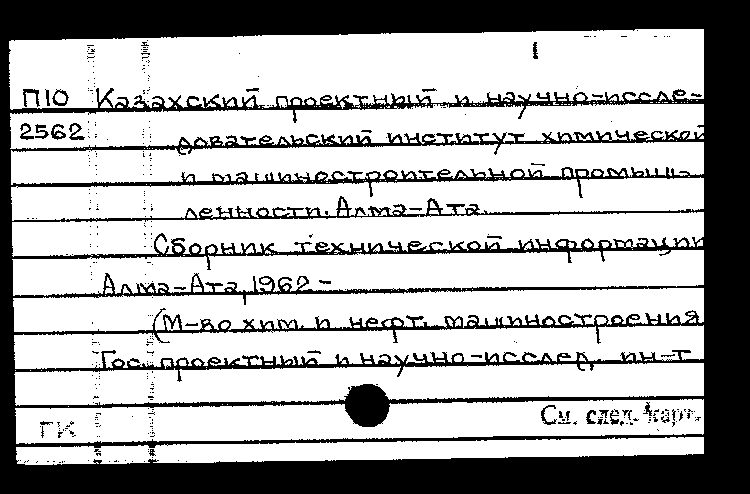 1
П10 Казахский проектный и научно-иссле-
2562 довательский институт химической
и машиностроительной промыш-
ленности. Алма-Ата.
Сборник технической информации
Алма-Ата, 1962 -
(М-во хим. и нефт. машиностроения
Гос. проектный и научно-исслед. ин-т
ГК См. след. карт.